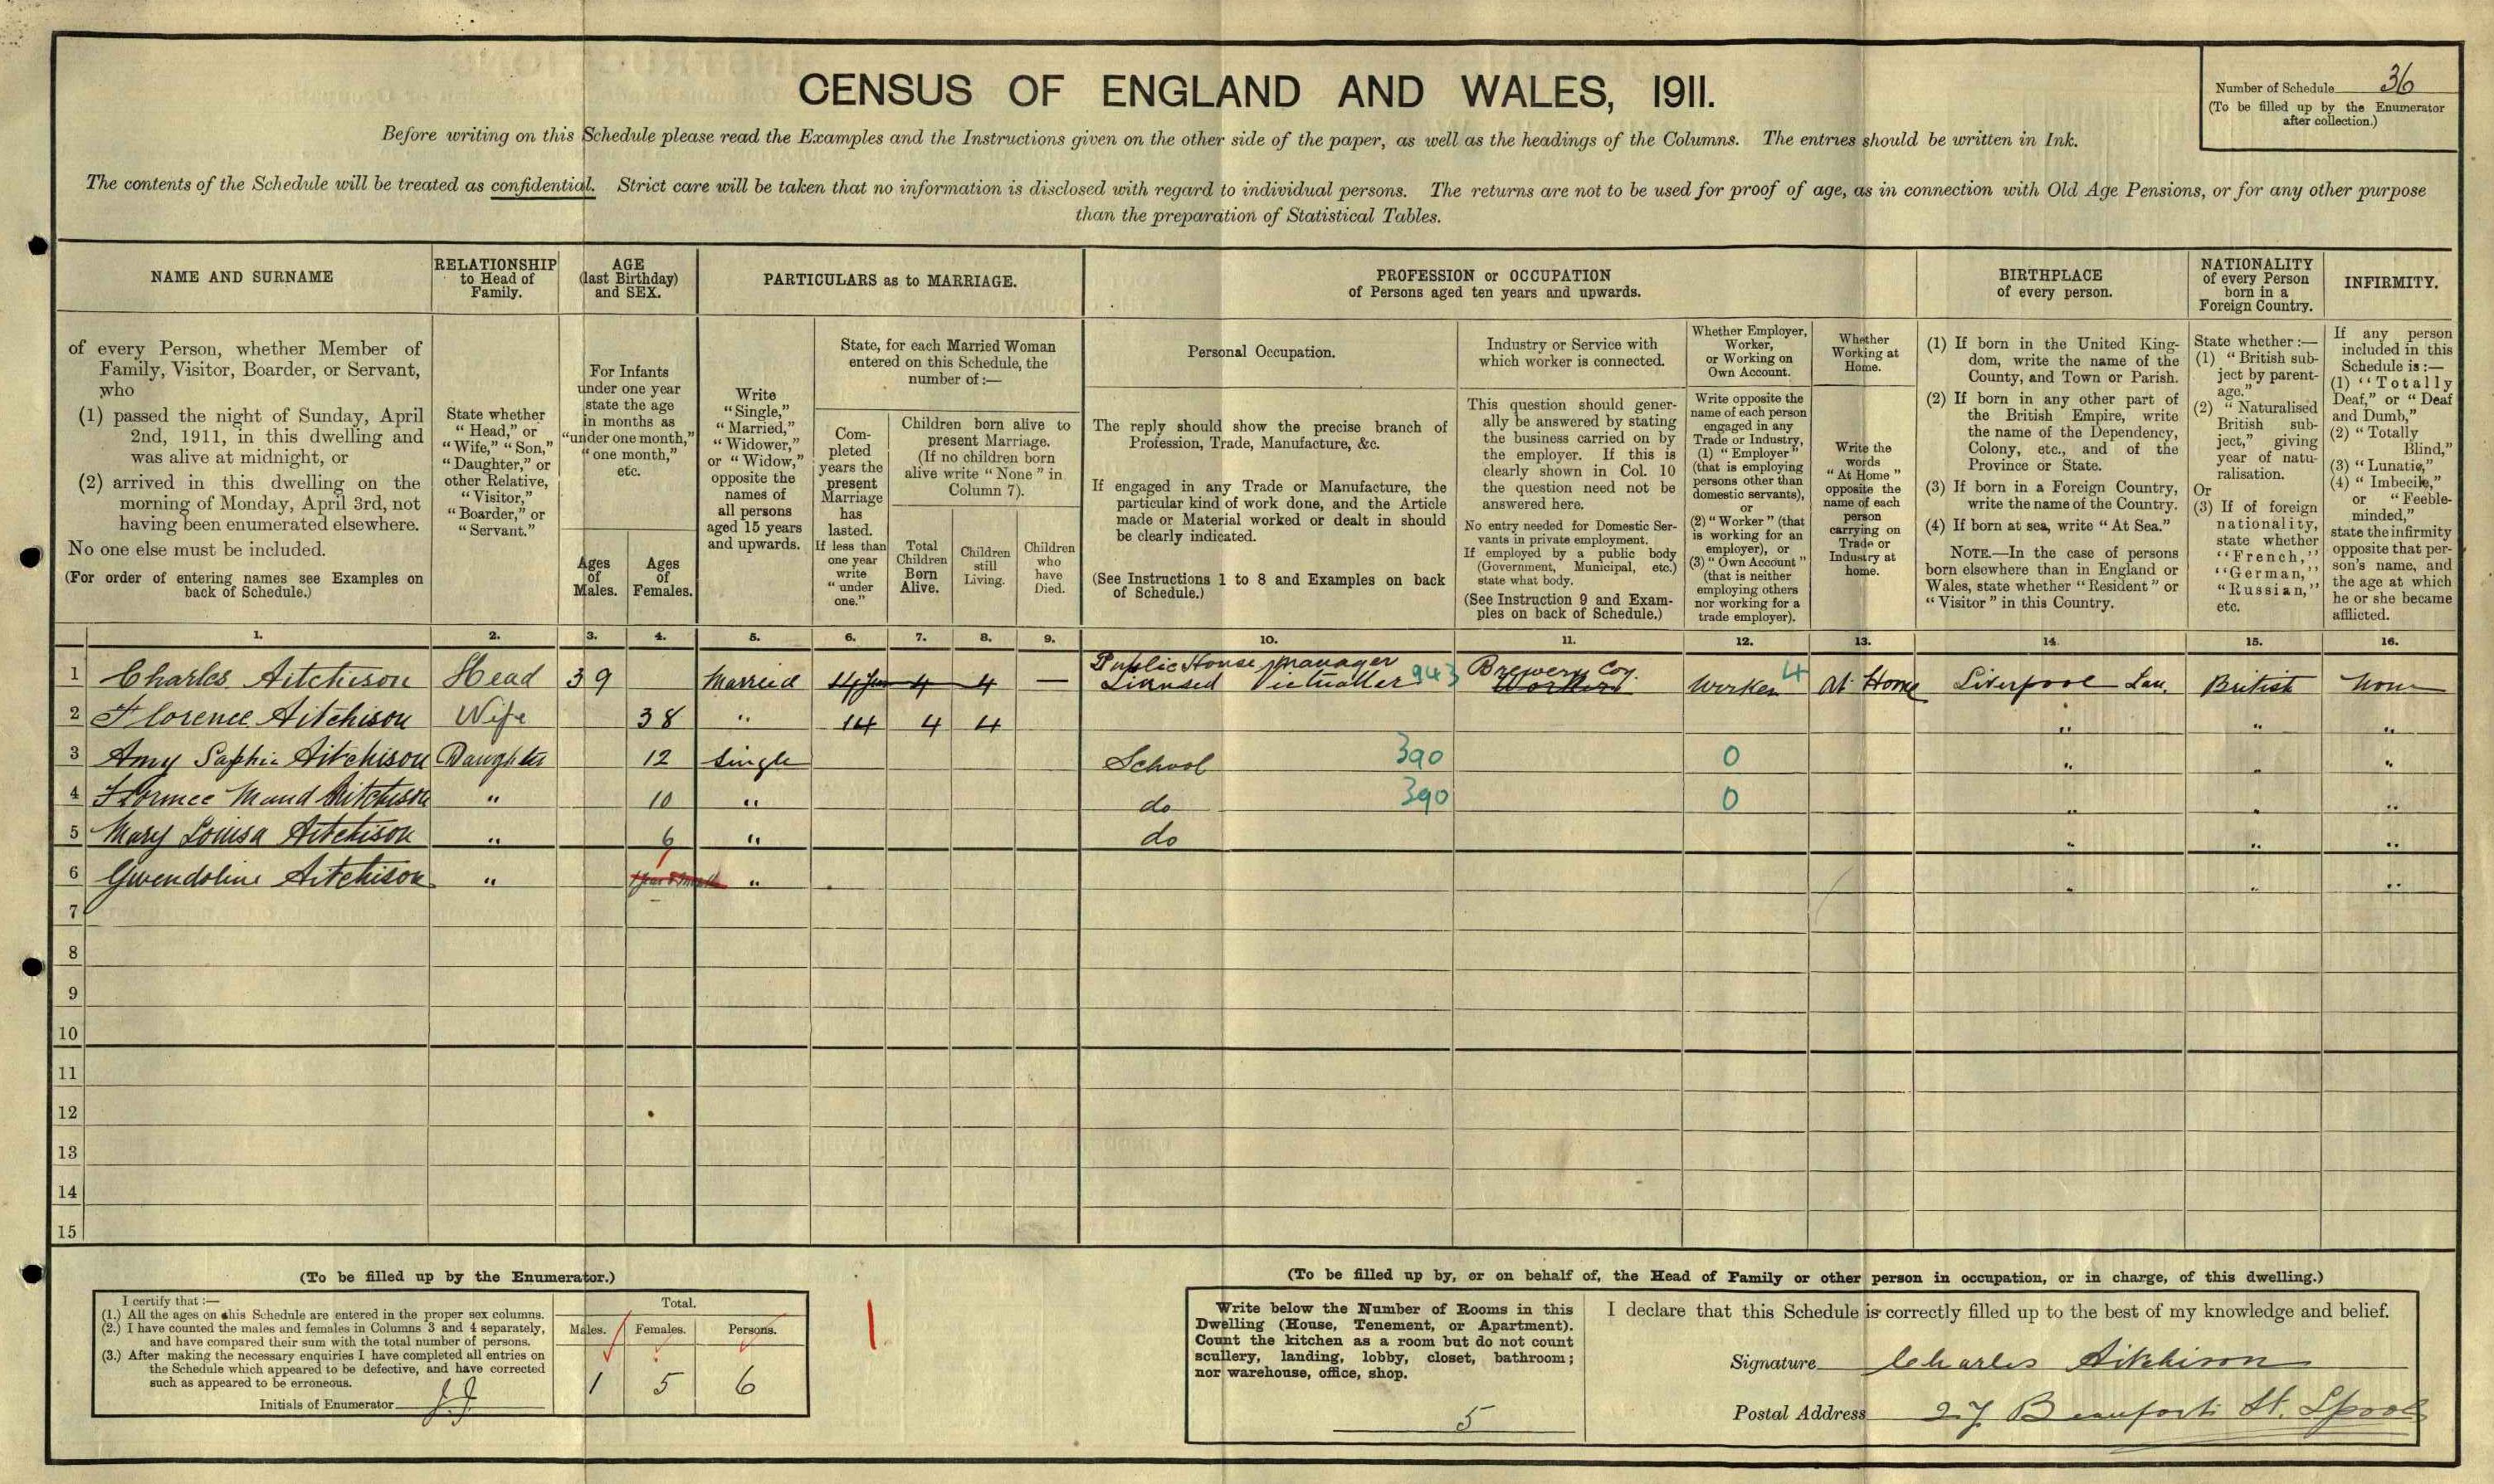 CENSUS OF ENGLAND AND WALES, 1911.
Number of Schedule 36
(To be filled up by the Enumerator
after collection.)
Before writing on this Schedule please read the Examples and the Instructions given on the other side of the paper, as well as the headings of the Columns. The entries should be written in Ink.
The contents of the Schedule will be treated as confidential. Strict care will be taken that no information is disclosed with regard to individual persons. The returns are not to be used for proof of age, as in connection with Old Age Pensions, or for any other purpose
than the preparation of Statistical Tables.
NAME AND SURNAME
of every Person, whether Member of
Family, Visitor, Boarder, or Servant,
who
(1) passed the night of Sunday, April
2nd, 1911, in this dwelling and
was alive at midnight, or
(2) arrived in this dwelling on the
morning of Monday, April 3rd, not
having been enumerated elsewhere.
No one else must be included.
(For order of entering names see Examples on
back of Schedule.)
RELATIONSHIP
to Head of
Family.
State whether
"Head," or
"Wife," "Son,"
"Daughter," or
other Relative,
"Visitor,"
"Boarder," or
"Servant."
AGE
(last Birthday)
and SEX.
For Infants
under one year
state the age
in months as
"under one month,"
"one month,"
etc.
Ages
of
Males.
Ages
of
Females.
PARTICULARS as to MARRIAGE.
Write
"Single,"
"Married,"
"Widower,"
or "Widow,"
opposite the
names of
all persons
aged 15 years
and upwards.
State, for each Married Woman
entered on this Schedule, the
number of :—
Com-
pleted
years the
present
Marriage
has
lasted.
If less than
one year
write
"under
one."
Children born alive to
present Marriage.
(If no children born
alive write "None" in
Column 7).
Total
Children
Born
Alive.
Children
still
Living.
Children
who
have
Died.
PROFESSION or OCCUPATION
of Persons aged ten years and upwards.
Personal Occupation.
The reply should show the precise branch of
Profession, Trade, Manufacture, &c.
If engaged in any Trade or Manufacture, the
particular kind of work done, and the Article
made or Material worked or dealt in should
be clearly indicated.
(See Instructions 1 to 8 and Examples on back
of Schedule.)
Industry or Service with
which worker is connected.
This question should gener-
ally be answered by stating
the business carried on by
the employer. If this is
clearly shown in Col. 10
the question need not be
answered here.
No entry needed for Domestic Ser-
vants in private employment.
If employed by a public body
(Government, Municipal, etc.)
state what body.
(See Instruction 9 and Exam-
ples on back of Schedule.)
Whether Employer,
Worker,
or Working on
Own Account.
Write opposite the
name of each person
engaged in any
Trade or Industry,
(1) "Employer"
(that is employing
persons other than
domestic servants),
or
(2) "Worker" (that
is working for an
employer), or
(3) "Own Account"
(that is neither
employing others
nor working for a
trade employer).
Whether
Working at
Home.
Write the
words
"At Home"
opposite the
name of each
person
carrying on
Trade or
Industry at
home.
BIRTHPLACE
of every person.
(1) If born in the United King-
dom, write the name of the
County, and Town or Parish.
(2) If born in any other part of
the British Empire, write
the name of the Dependency,
Colony, etc., and of the
Province or State.
(3) If born in a Foreign Country,
write the name of the Country.
(4) If born at sea, write "At Sea."
NOTE.—In the case of persons
born elsewhere than in England or
Wales, state whether "Resident" or
"Visitor" in this Country.
NATIONALITY
of every Person
born in a
Foreign Country.
State whether :—
(1) "British sub-
ject by parent-
age."
(2) "Naturalised
British sub-
ject," giving
year of natu-
ralisation.
Or
(3) If of foreign
nationality,
state whether
"French,"
"German,"
"Russian,"
etc.
INFIRMITY.
If any person
included in this
Schedule is :—
(1) "Totally
Deaf," or "Deaf
and Dumb,"
(2) "Totally
Blind,"
(3) "Lunatic,"
(4) "Imbecile,"
or "Feeble-
minded,"
state the infirmity
opposite that per-
son's name, and
the age at which
he or she became
afflicted.
1. 2. 3. 4. 5. 6. 7. 8. 9. 10. 11. 12. 13. 14. 15. 16.
Public House Manager Brewery Coy.
1 Charles Aitchison Head 39 Married 14 4 4 — Licensed Victualler 943 Worker Worker 4 At Home Liverpool Lan. British None
2 Florence Aitchison Wife 38 " 14 4 4 " " "
3 Amy Sophia Aitchison Daughter 12 Single School 390 0 " " "
4 Florence Maud Aitchison " 10 " do 390 0 " " "
5 Mary Louisa Aitchison " 6 " do " " "
6 Gwendoline Aitchison " 1 " " " "
7
8
9
10
11
12
13
14
15
(To be filled up by the Enumerator.)
I certify that :—
(1.) All the ages on this Schedule are entered in the proper sex columns.
(2.) I have counted the males and females in Columns 3 and 4 separately,
and have compared their sum with the total number of persons.
(3.) After making the necessary enquiries I have completed all entries on
the Schedule which appeared to be defective, and have corrected
such as appeared to be erroneous.
Initials of Enumerator
Total.
Males. Females. Persons.
1 5 6
(To be filled up by, or on behalf of, the Head of Family or other person in occupation, or in charge, of this dwelling.)
Write below the Number of Rooms in this
Dwelling (House, Tenement, or Apartment).
Count the kitchen as a room but do not count
scullery, landing, lobby, closet, bathroom ;
nor warehouse, office, shop.
5
I declare that this Schedule is correctly filled up to the best of my knowledge and belief.
Signature Charles Aitchison
Postal Address 27 Beaufort St. Lpool